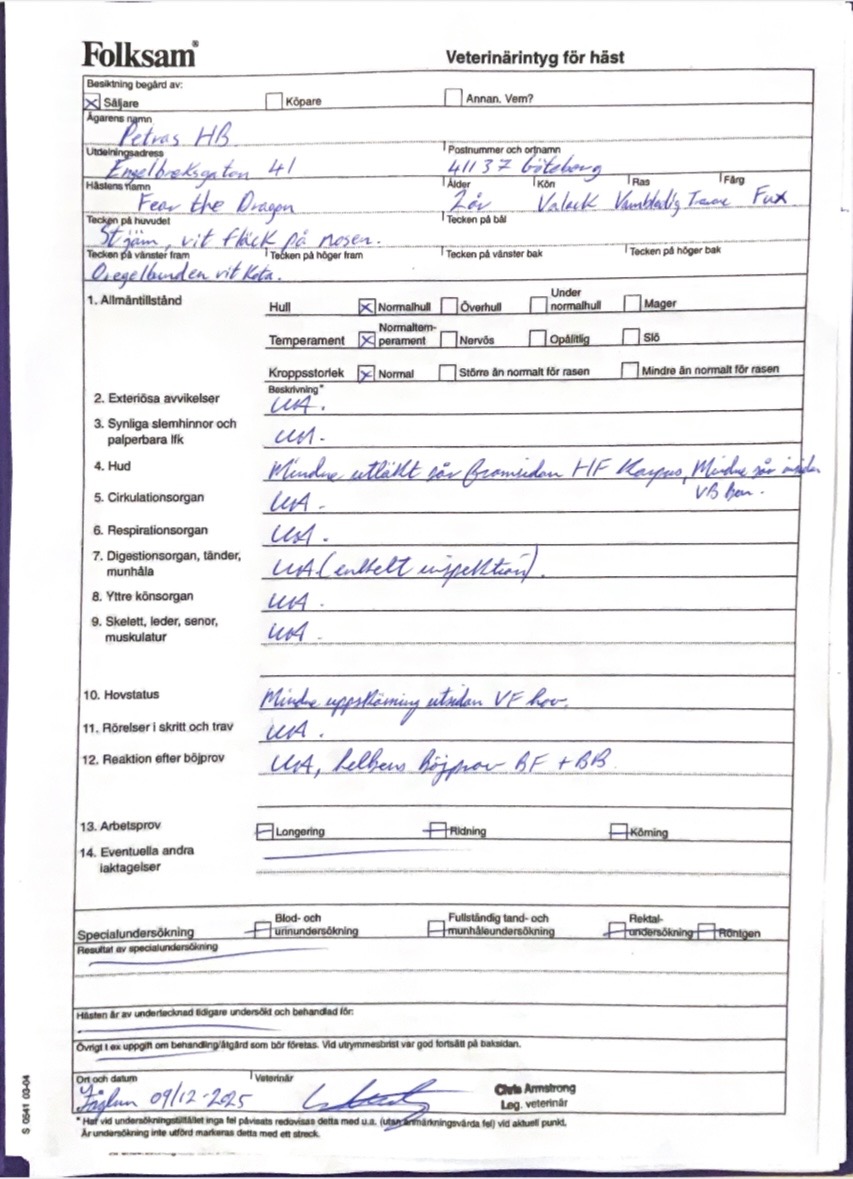 Folksam®
Veterinärintyg för häst
Besiktning begärd av:
Säljare Köpare Annan. Vem?
Ägarens namn
Petras HB
Utdelningsadress Postnummer och ortnamn
Engelbreksgatan 41 41137 Göteborg
Hästens namn Ålder Kön Ras Färg
Fear the Dragon 2år Valack Varmblodig Fux
Tecken på huvudet Tecken på bål
Stjärn, vit fläck på nosen.
Tecken på vänster fram Tecken på höger fram Tecken på vänster bak Tecken på höger bak
Oregelbunden vit kota.
1. Allmäntillstånd Hull Normalhull Överhull Under normalhull Mager
Temperament Normaltem-perament Nervös Opålitlig Slö
Kroppsstorlek Normal Större än normalt för rasen Mindre än normalt för rasen
Beskrivning*
2. Exteriösa avvikelser UA.
3. Synliga slemhinnor och
palperbara lfk UA.
4. Hud Mindre utläkt sår framsidan HF Karpus, Mindre sår insidan
VB ben.
5. Cirkulationsorgan UA.
6. Respirationsorgan UA.
7. Digestionsorgan, tänder,
munhåla UA (enkelt inspektion).
8. Yttre könsorgan UA.
9. Skelett, leder, senor,
muskulatur UA.
10. Hovstatus Mindre uppskärning utsidan VF hov.
11. Rörelser i skritt och trav UA.
12. Reaktion efter böjprov UA, helbens böjprov BF + BB
13. Arbetsprov Longering Ridning Körning
14. Eventuella andra
iaktagelser
Specialundersökning Blod- och urinundersökning Fullständig tand- och munhåleundersökning Rektal-undersökning Röntgen
Resultat av specialundersökning
Hästen är av undertecknad tidigare undersökt och behandlad för:
Övrigt t ex uppgift om behandling/åtgärd som bör företas. Vid utrymmesbrist var god fortsätt på baksidan.
Ort och datum Veterinär
09/12-2025
Chris Armstrong
Leg. veterinär
* Har vid undersökningstillfället inga fel påvisats redovisas detta med u.a. (utan anmärkningsvärda fel) vid aktuell punkt.
Är undersökning inte utförd markeras detta med ett streck.
S 0541 03-04